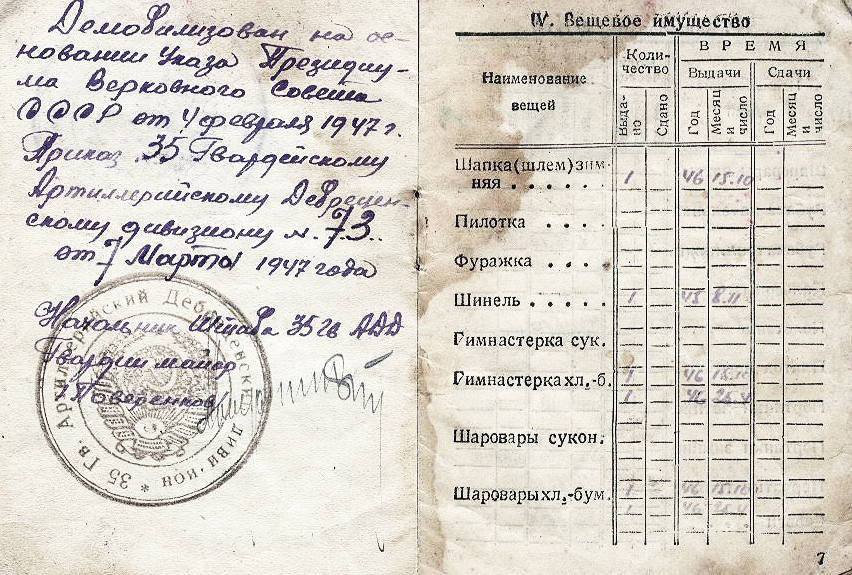 Демобилизован на ос-
новании Указа Президиу-
ма Верховного Совета
СССР от 4 февраля 1947 г.
Приказ 35 Гвардейскому
Артиллерийскому Дебрецен-
скому дивизиону №. 73.
от 7 Марта 1947 года
Начальник Штаба 35 гв АДД
Гвардии майор
35 Гв. Артиллерийский Дебреценский Дивизион *
IV. Вещевое имущество
Наименование вещей
Коли-
чество
ВРЕМЯ
Выдачи Сдачи
Выда-
но
Сдано
Год
Месяц
и
число
Год
Месяц
и
число
Шапка (шлем) зим-
няя . . . . . 1 46 15.10
Пилотка . . . .
Фуражка . . . .
Шинель . . . . . 1 45 8.11
Гимнастерка сук.
Гимнастерка хл.-б. 1 46 15.10
1 46 25.4
Шаровары сукон.
Шаровары хл.-бум. 1 46 15.10
1 46 25.4
7